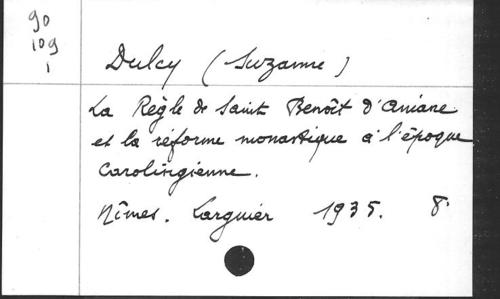 90
109
1
Dulcy (Suzanne)
La Règle de Saint Benoît d'Aniane
et la réforme monastique à l'époque
Carolingienne.
Nîmes. Larguier 1935. 8°